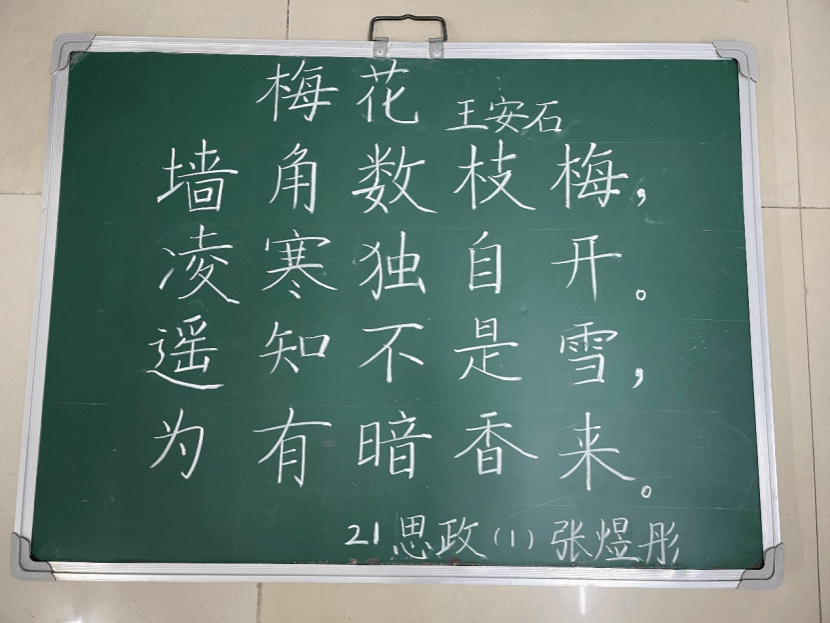 梅花
王安石
墙角数枝梅，
凌寒独自开。
遥知不是雪，
为有暗香来。
21思政(1)张煜彤